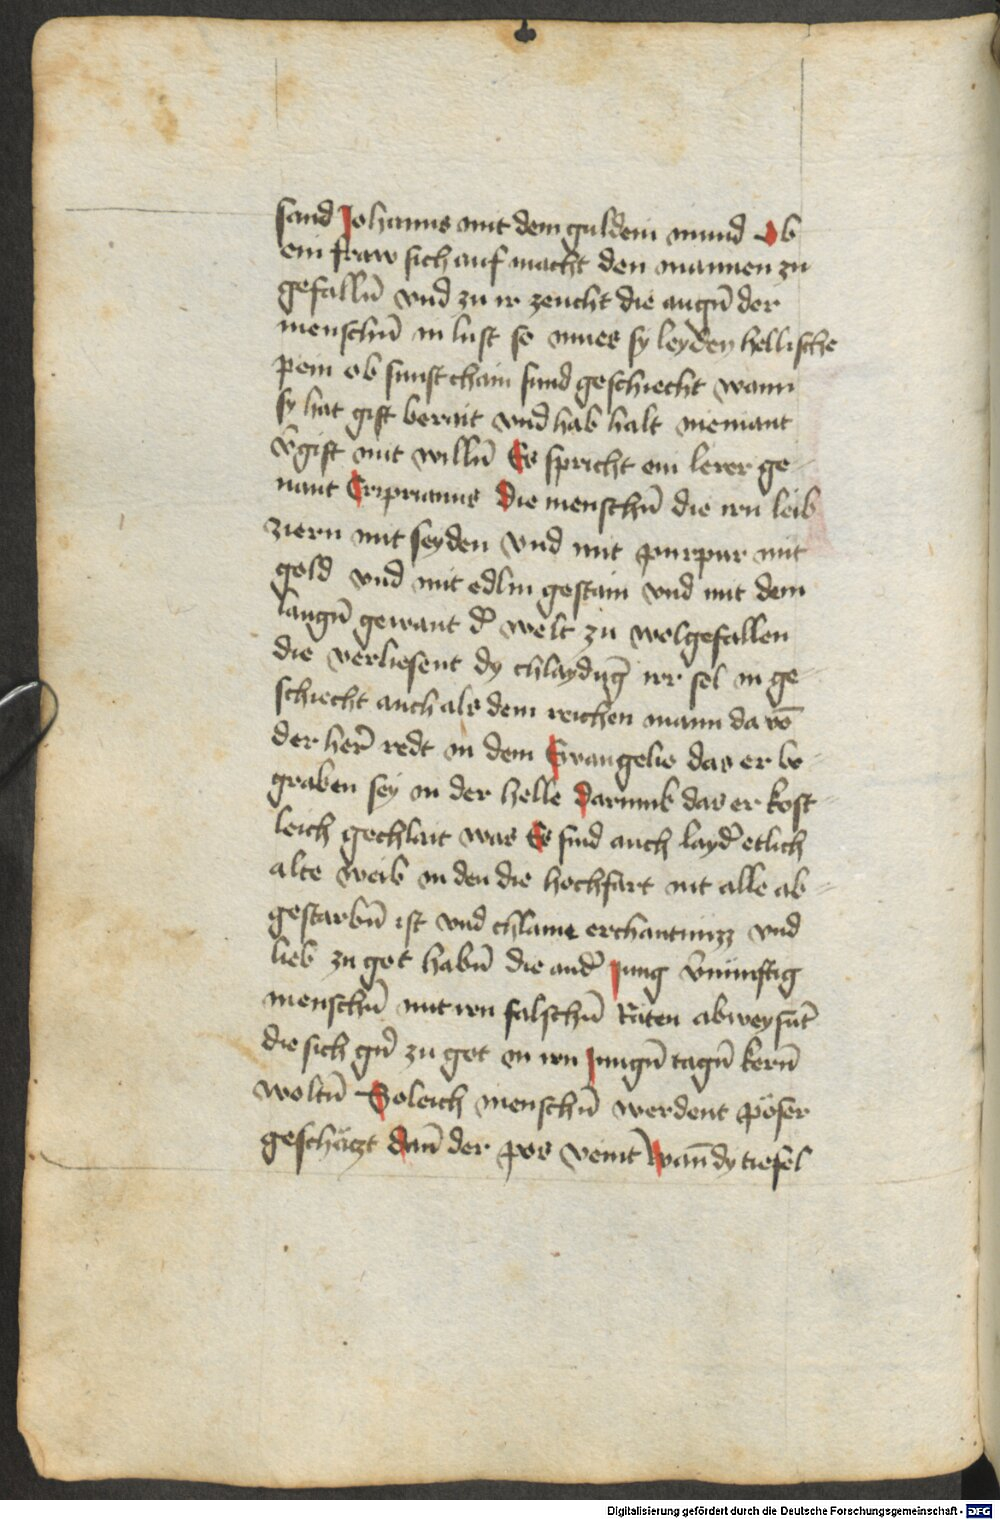 sand Johanns mit dem guldein mund Ob
ein fraw sich auf macht den mannen zu
gefalln̄ vnd zu ir zeucht die augn̄ der
menschn̄ in lust so mues sy leyden hellische
pein ob sunst chain sund geschiecht wann
sy hat gift berait vnd hab halt niemant
v̄gift mit willn̄ Es spricht ein lerer ge
nant Cripriannus Die menschn̄ die irn leib
ziern mit seyden vnd mit purpur mit
gold vnd mit edlm gestain vnd mit dem
langn̄ gewant d̄ welt zu wolgefallen
die verliesent dy chlaydūg irr sel in ge
schiecht auch als dem reichen mann da vō
der her̄ redt in dem Ewangelio das er be
graben sey in der helle darumb das er kost
leich gechlait was Es sind auch layd̄ etlich
alte weib in den die hochfart nit alle ab
gestarbn̄ ist vnd chlaine erchantnizz vnd
lieb zu got habn̄ die and̄ Jung v̄nünftig
menschn̄ mit irn falschn̄ Räten abweysūt
die sich gn̄ zu got in irn Jungn̄ tagn̄ kern̄
woltn̄ Soleich menschn̄ werdent pöser
geschätzt dan̄ der pos veint Wan̄ dy tiefel
Digitalisierung gefördert durch die Deutsche Forschungsgemeinschaft - DFG